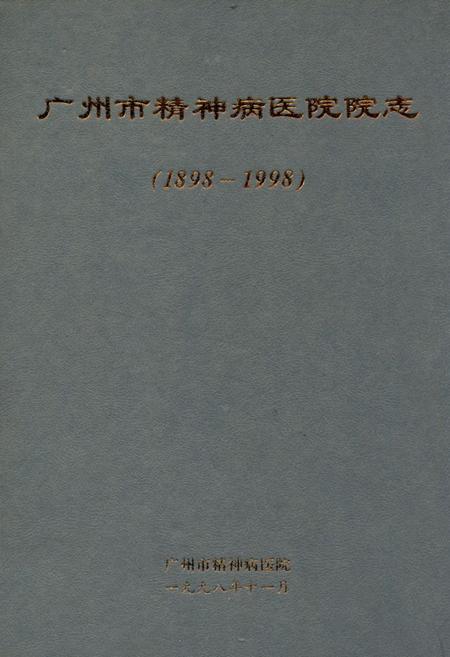 广州市精神病医院院志
(1898－1998)
广州市精神病医院
一九九八年十一月